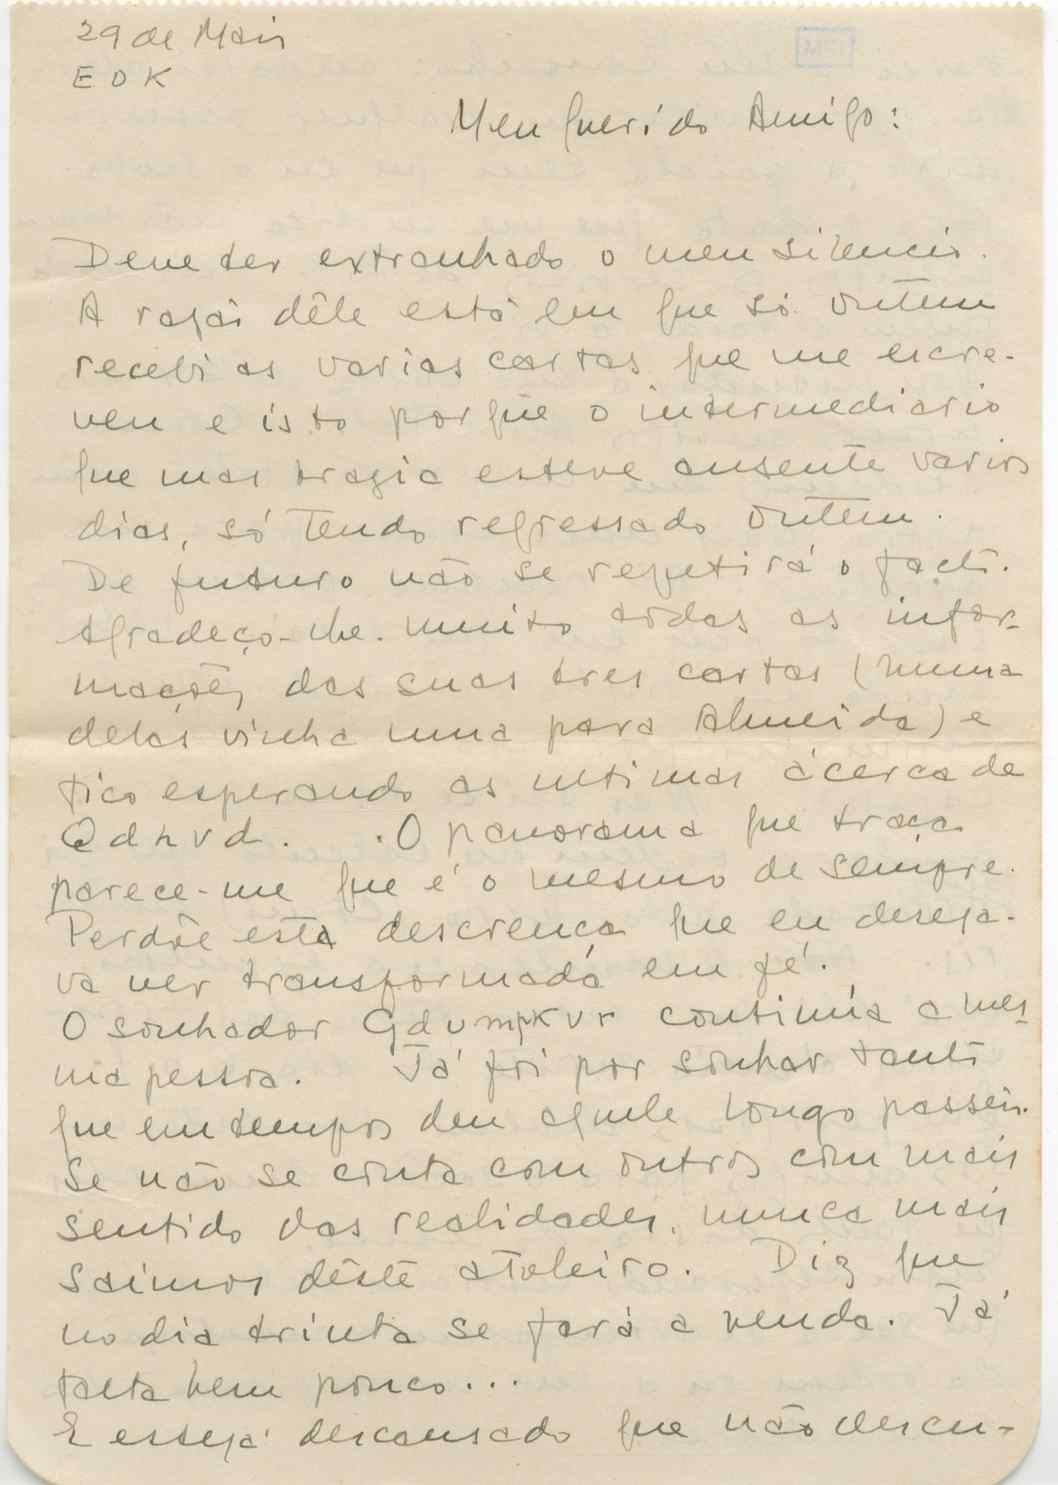 29 de Maio
E D K
Meu querido Amigo:
Deve ter extranhado o meu silencio.
A razão dêle está em que só ontem
recebi as varias cartas que me escre-
veu e isto porque o intermediario
que mas trazia esteve ausente varios
dias, só tendo regressado ontem.
De futuro não se repetirá o facto.
Agradeço-lhe muito todas as infor-
mações das suas tres cartas (numa
delas vinha uma para Almeida) e
fico esperando as ultimas ácerca de
Q d h v d. . O panorama que traça
parece-me que é o mesmo de sempre.
Perdôe esta descrença que eu deseja-
va ver transformada em fé.
O sonhador continúa a mes-
ma pessoa. Já foi por sonhar tanto
que em tempos deu aquele longo passeio.
Se não se conta com outros com mais
sentido das realidades, nunca mais
saimos dêste atoleiro. Diz que
no dia trinta se fará a venda. Já
falta bem pouco...
E esteja descansado que não descu-